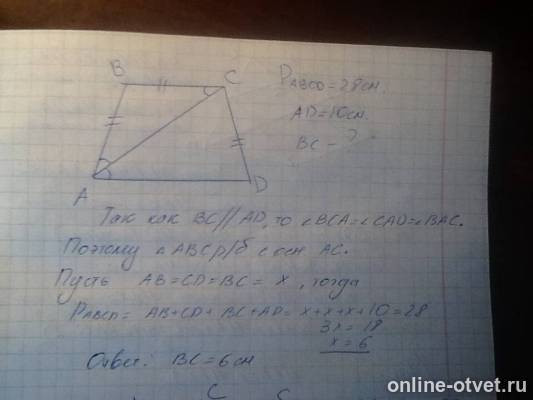 B C
P ABCD = 28 см.
AD = 10 см.
BC - ?
A D
Так как BC // AD, то ∠BCA = ∠CAD = ∠BAC.
Поэтому △ABC р/б с осн AC.
Пусть AB = CD = BC = x, тогда
P ABCD = AB + CD + BC + AD = x + x + x + 10 = 28
3x = 18
x = 6
Ответ: BC = 6 см
C
online-otvet.ru